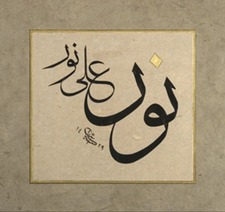 نور على نور